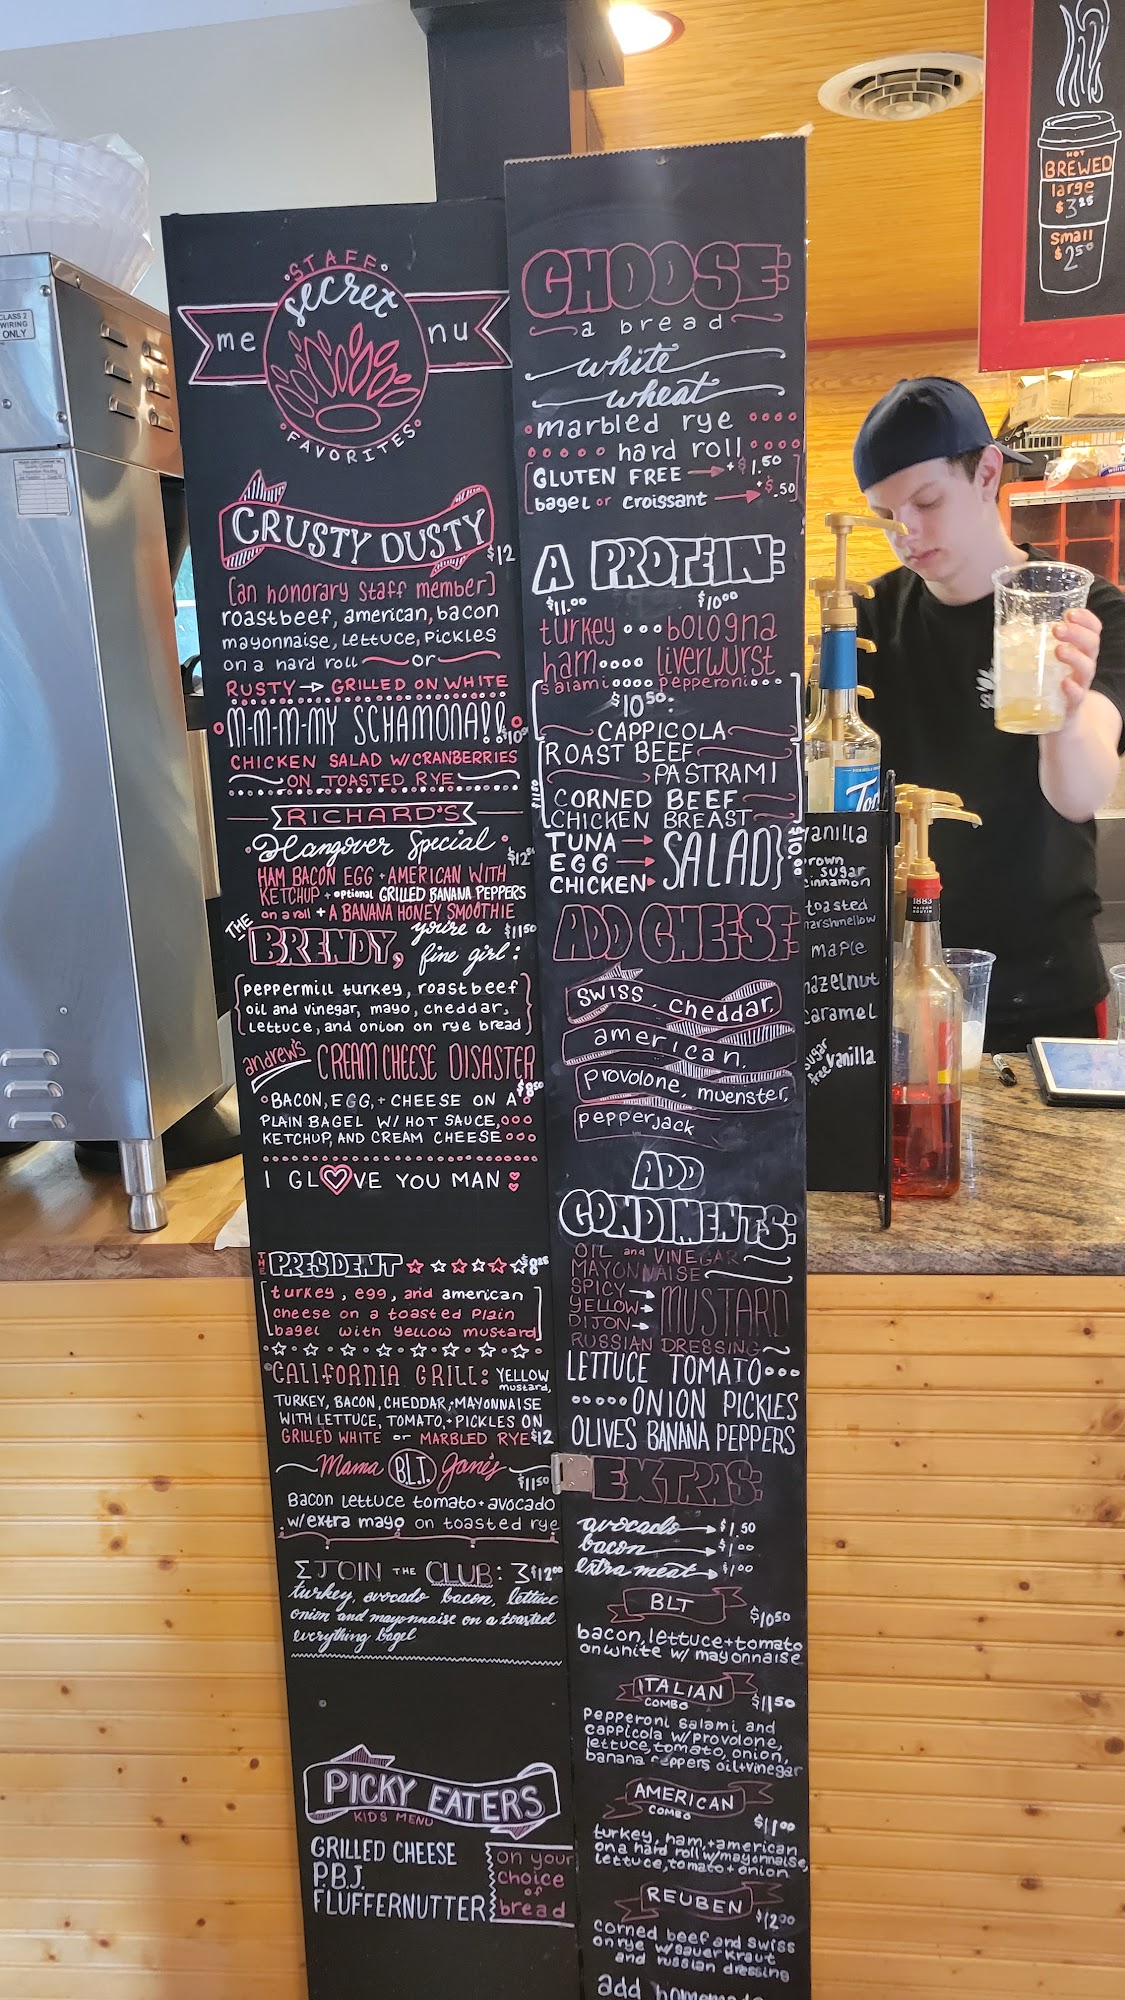 STAFF
secret
me nu
FAVORITES
CRUSTY DUSTY
$12
[an honorary staff member]
roastbeef, american, bacon
mayonnaise, lettuce, pickles
on a hard roll or
RUSTY → GRILLED ON WHITE
M-M-M-MY SCHAMONA!!
$10
CHICKEN SALAD W/CRANBERRIES
ON TOASTED RYE
RICHARD'S
Hangover Special
$12
HAM BACON EGG + AMERICAN WITH
KETCHUP + optional GRILLED BANANA PEPPERS
on a roll + A BANANA HONEY SMOOTHIE
THE BRENDY, you're a fine girl:
$11.50
peppermill turkey, roastbeef
oil and vinegar, mayo, cheddar,
lettuce, and onion on rye bread
andrew's CREAM CHEESE DISASTER
$8.50
BACON, EGG, + CHEESE ON A
PLAIN BAGEL W/ HOT SAUCE,
KETCHUP, AND CREAM CHEESE
I GL♡VE YOU MAN
THE PRESIDENT
turkey, egg, and american
cheese on a toasted plain
bagel with yellow mustard
CALIFORNIA GRILL: YELLOW
mustard,
TURKEY, BACON, CHEDDAR, + MAYONNAISE
WITH LETTUCE, TOMATO, + PICKLES ON
GRILLED WHITE or MARBLED RYE $12
Mama B.L.T. Jone's
$11.50
Bacon lettuce tomato + avocado
w/extra mayo on toasted rye
JOIN THE CLUB: $12.00
turkey, avocado bacon, lettuce
onion and mayonnaise on a toasted
everything bagel
PICKY EATERS
KIDS MENU
GRILLED CHEESE
P.B.J.
FLUFFERNUTTER
on your
choice
of
bread
CHOOSE:
a bread
white
wheat
marbled rye
hard roll
GLUTEN FREE → +$1.50
bagel or croissant → +$.50
A PROTEIN:
$11.00 $10.00
turkey bologna
ham liverwurst
salami pepperoni
$10.50:
CAPPICOLA
ROAST BEEF
PASTRAMI
$11.50
CORNED BEEF
CHICKEN BREAST
TUNA →
EGG → SALAD
CHICKEN
ADD CHEESE:
swiss, cheddar,
american,
provolone, muenster,
pepperjack
ADD
CONDIMENTS:
OIL and VINEGAR
MAYONNAISE
SPICY →
YELLOW → MUSTARD
DIJON →
RUSSIAN DRESSING
LETTUCE TOMATO
ONION PICKLES
OLIVES BANANA PEPPERS
EXTRAS:
avocado → $1.50
bacon → $1.00
extra meat → $1.00
BLT
$10.50
bacon, lettuce + tomato
on white w/ mayonnaise
ITALIAN
COMBO
$11.50
Pepperoni salami and
cappicola w/provolone,
lettuce, tomato, onion,
banana peppers oil+vinegar
AMERICAN
COMBO
$11.00
turkey, ham, + american
on a hard roll w/mayonnaise,
lettuce, tomato + onion
REUBEN
$12.00
corned beef and swiss
on rye w/sauerkraut
and russian dressing
add
HOT
BREWED
large
$3.25
small
$2.50
vanilla
brown
sugar
cinnamon
toasted
marshmellow
maple
hazelnut
caramel
sugar free vanilla
1883
CLASS 2
WIRING
ONLY